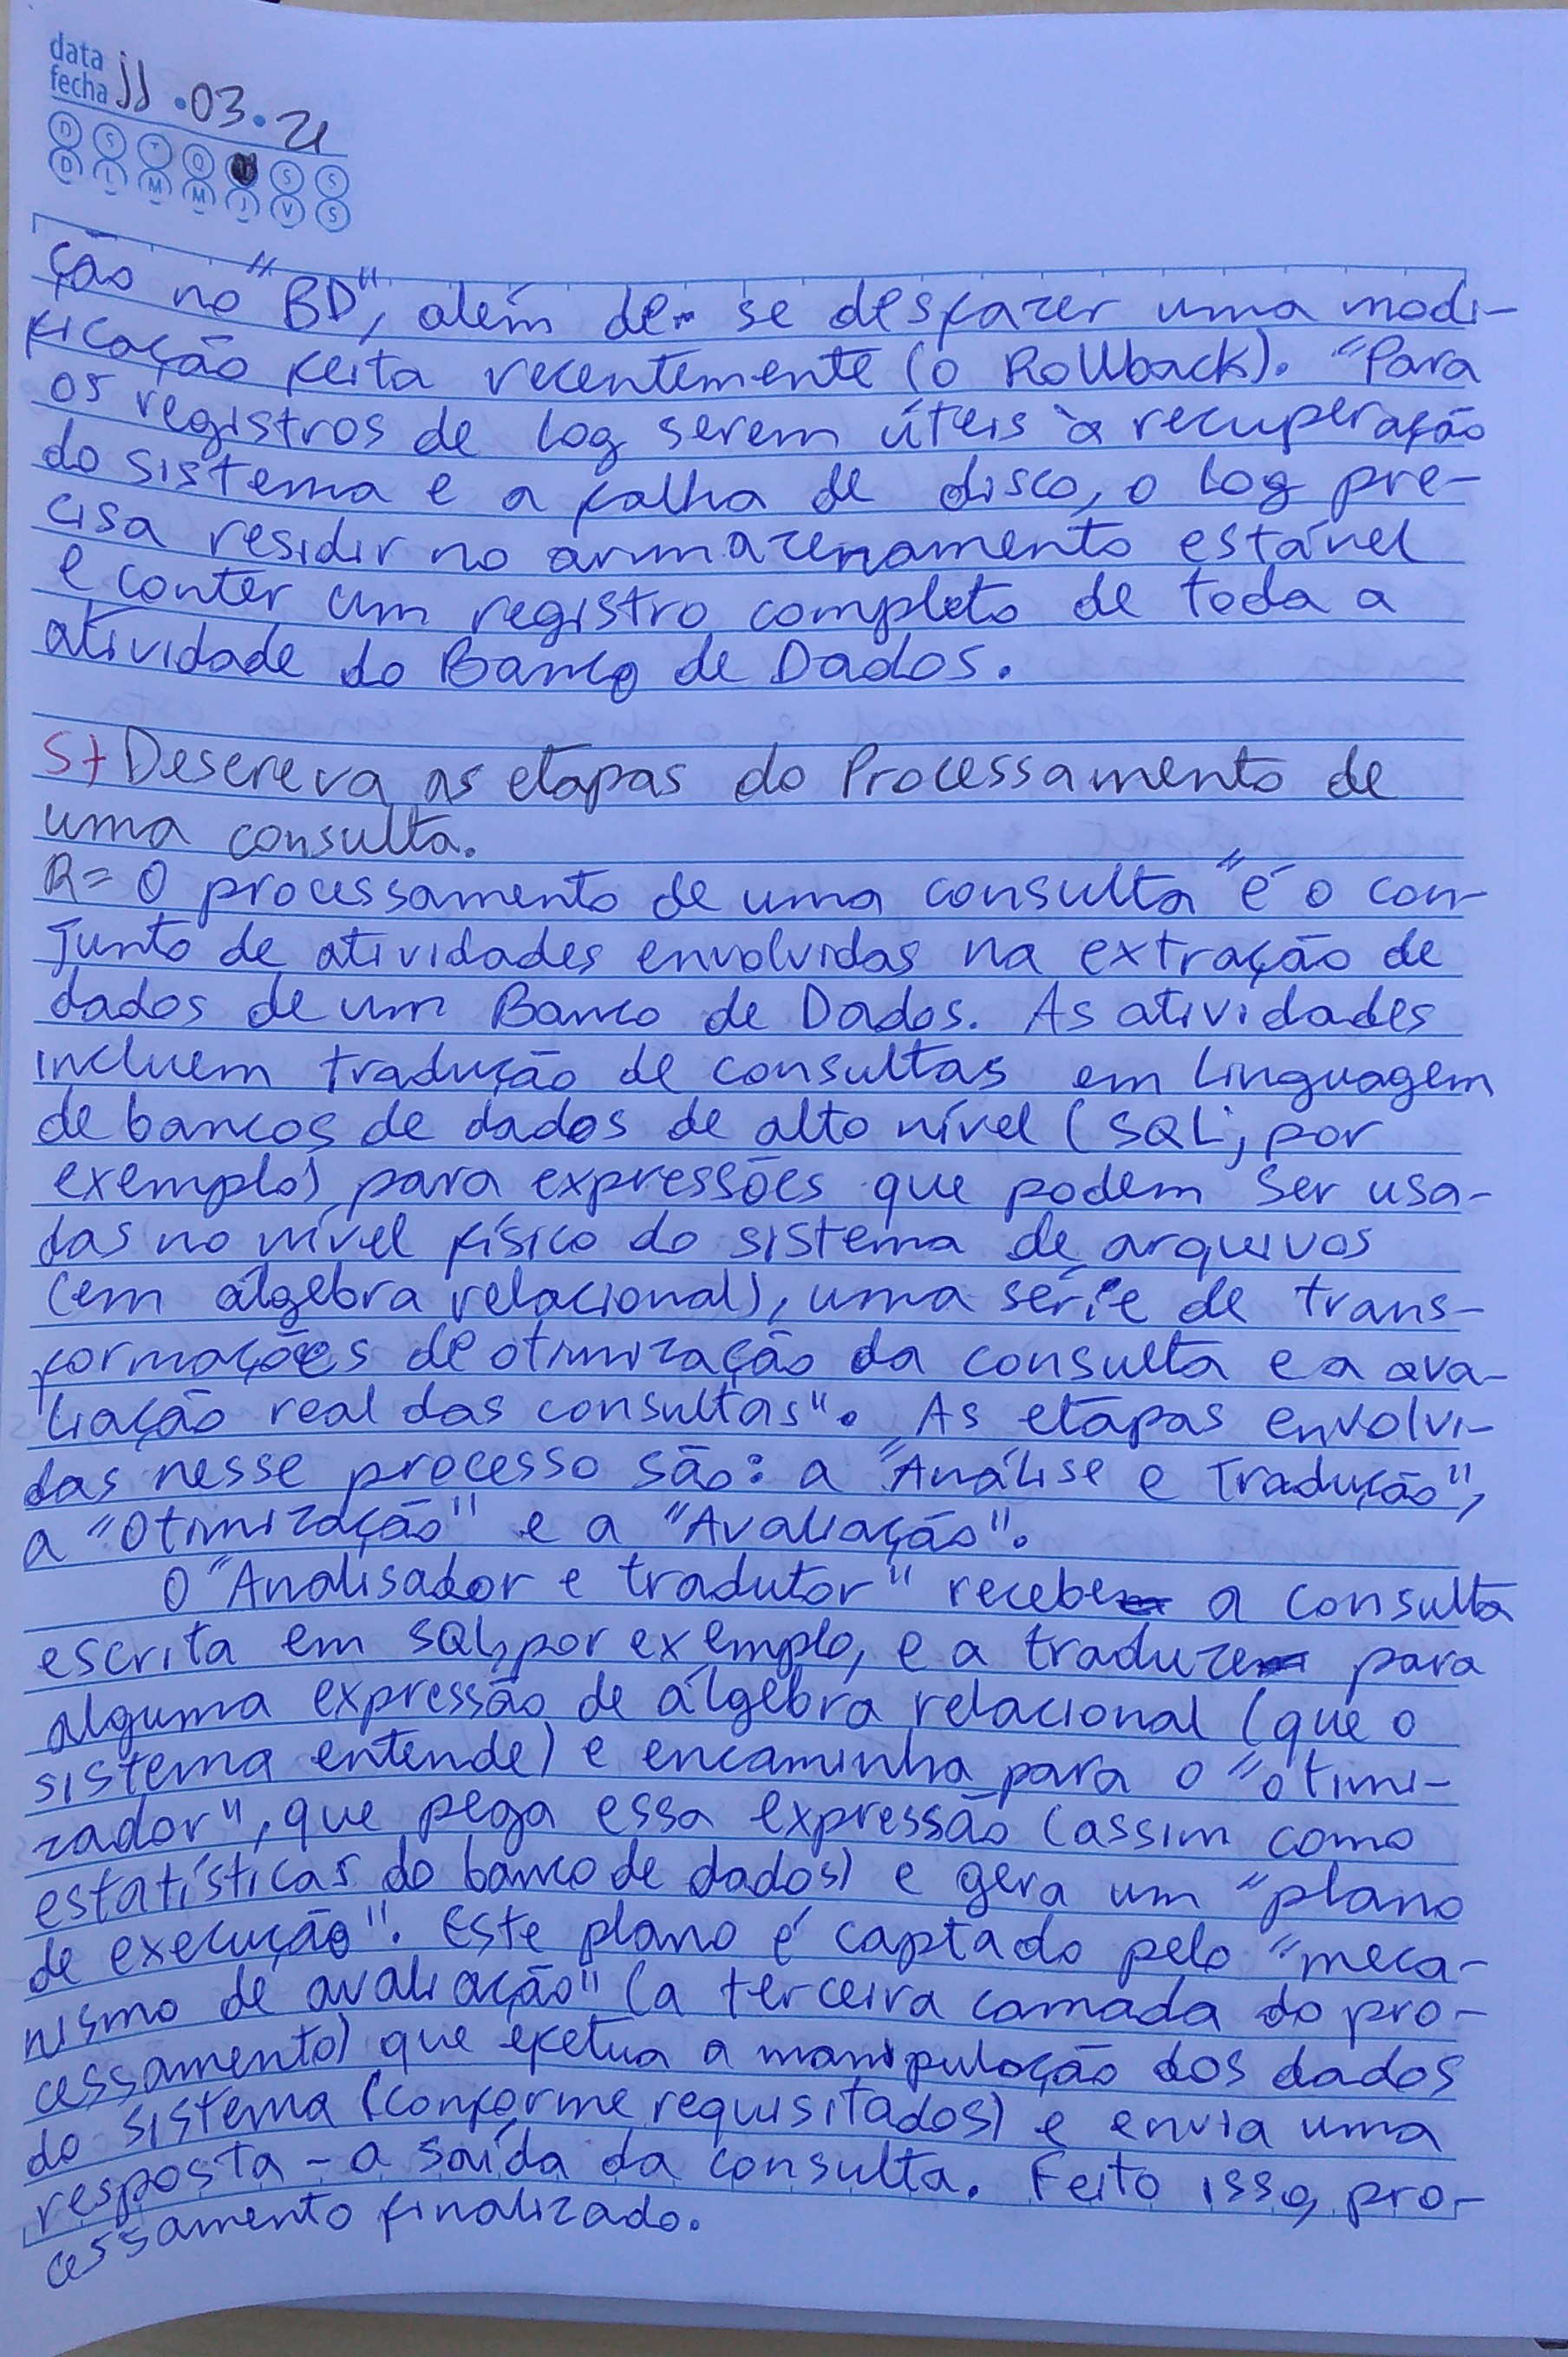 data
fecha 11 . 03 . 21
D S T Q S S
D L M M J V S
ção no "BD", além de se desfazer uma modi-
ficação feita recentemente (o Rollback). "Para
os registros de log serem úteis à recuperação
do sistema e a falha de disco, o log pre-
cisa residir no armazenamento estável
e conter um registro completo de toda a
atividade do Banco de Dados.
5+ Descreva as etapas do Processamento de
uma consulta.
R= O processamento de uma consulta "é o con-
junto de atividades envolvidas na extração de
dados de um Banco de Dados. As atividades
incluem tradução de consultas em linguagem
de bancos de dados de alto nível (SQL, por
exemplo) para expressões que podem ser usa-
das no nível físico do sistema de arquivos
(em álgebra relacional), uma série de trans-
formações de otimização da consulta e a ava-
liação real das consultas". As etapas envolvi-
das nesse processo são: a "Análise e Tradução",
a "Otimização" e a "Avaliação".
O "Analisador e tradutor" recebe a consulta
escrita em SQL, por exemplo, e a traduze para
alguma expressão de álgebra relacional (que o
sistema entende) e encaminha para o "otimi-
zador", que pega essa expressão (assim como
estatísticas do banco de dados) e gera um "plano
de execução". Este plano é captado pelo "meca-
nismo de avaliação" (a terceira camada do pro-
cessamento) que efetua a manipulação dos dados
do sistema (conforme requisitados) e envia uma
resposta - a saída da consulta. Feito isso, pro-
cessamento finalizado.